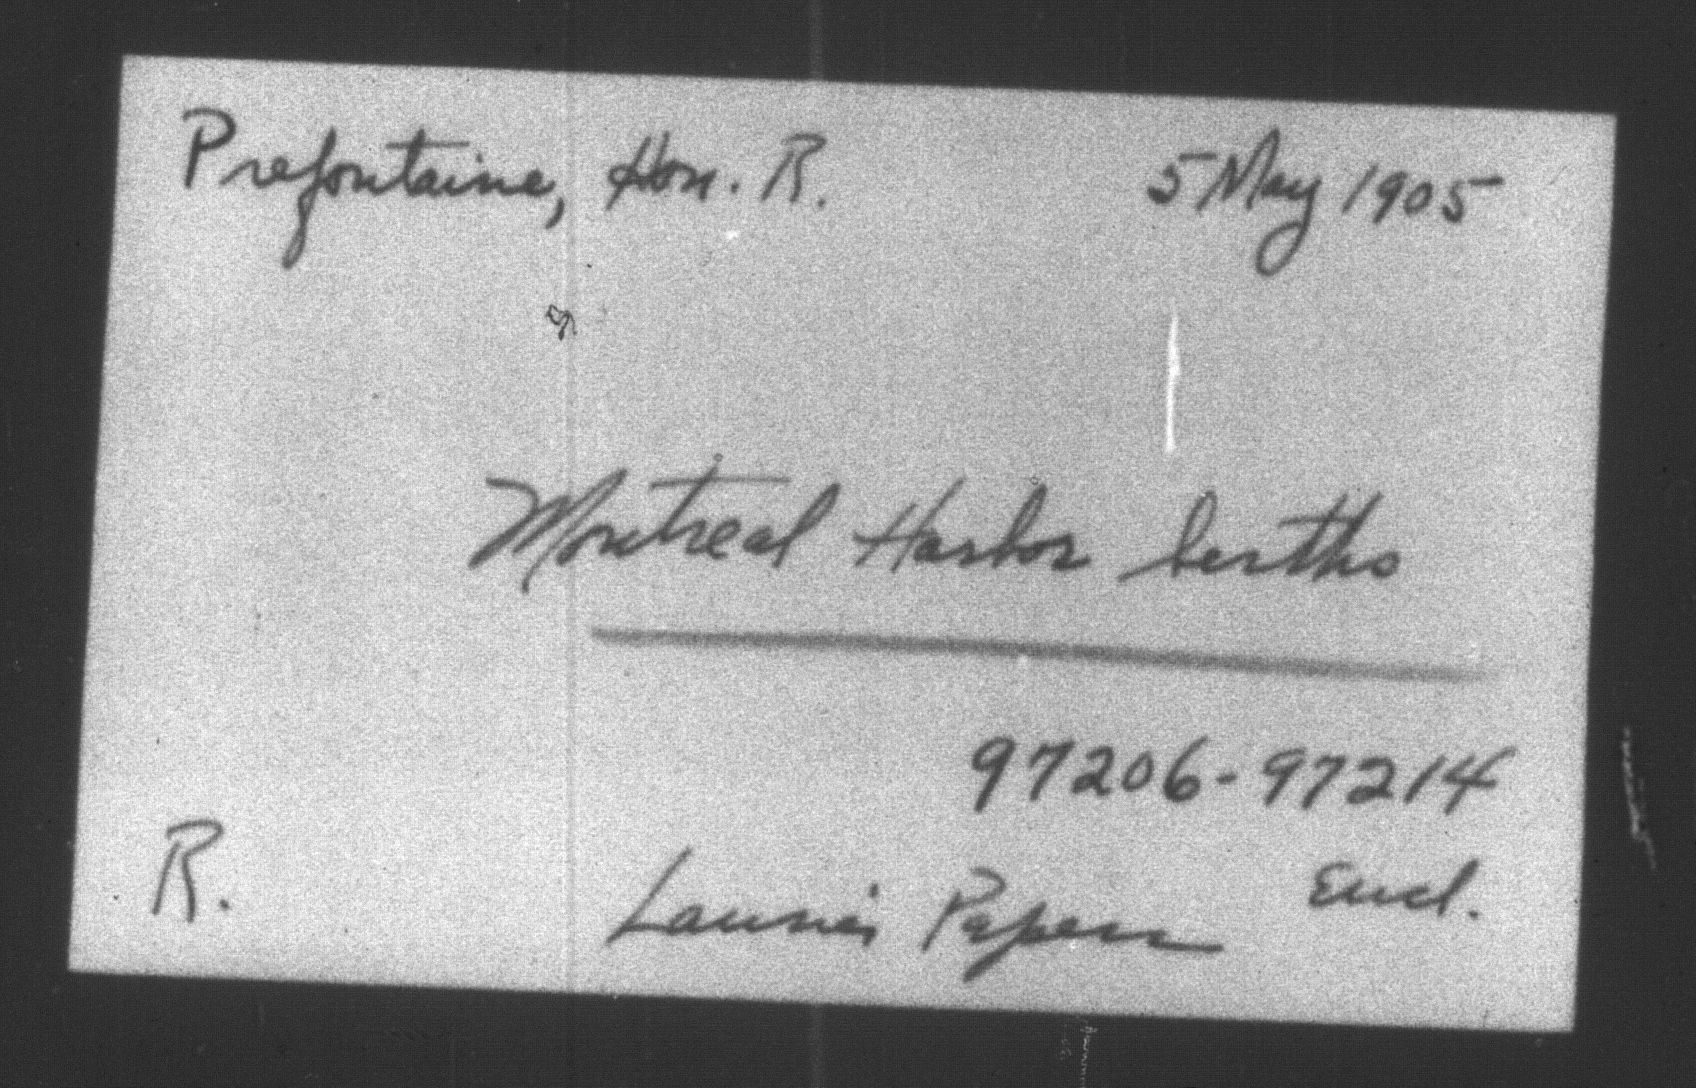 Prefontaine, Hon. R. 5 May 1905
Montreal Harbor berths
97206-97214
R. Laurier Papers Encl.